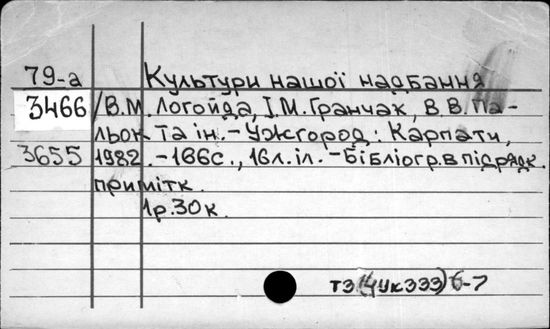 79-а Культури нашої надбання
3466 /В.М. Логойда, І.М. Гранчак, В.В. Па-
льок та ін. - Ужгород: Карпати,
3655 1982. - 166с., 16л.іл. - Бібліогр. в підрядк.
примітк.
1р.30к.
ТЗ(4Ук333)6-7